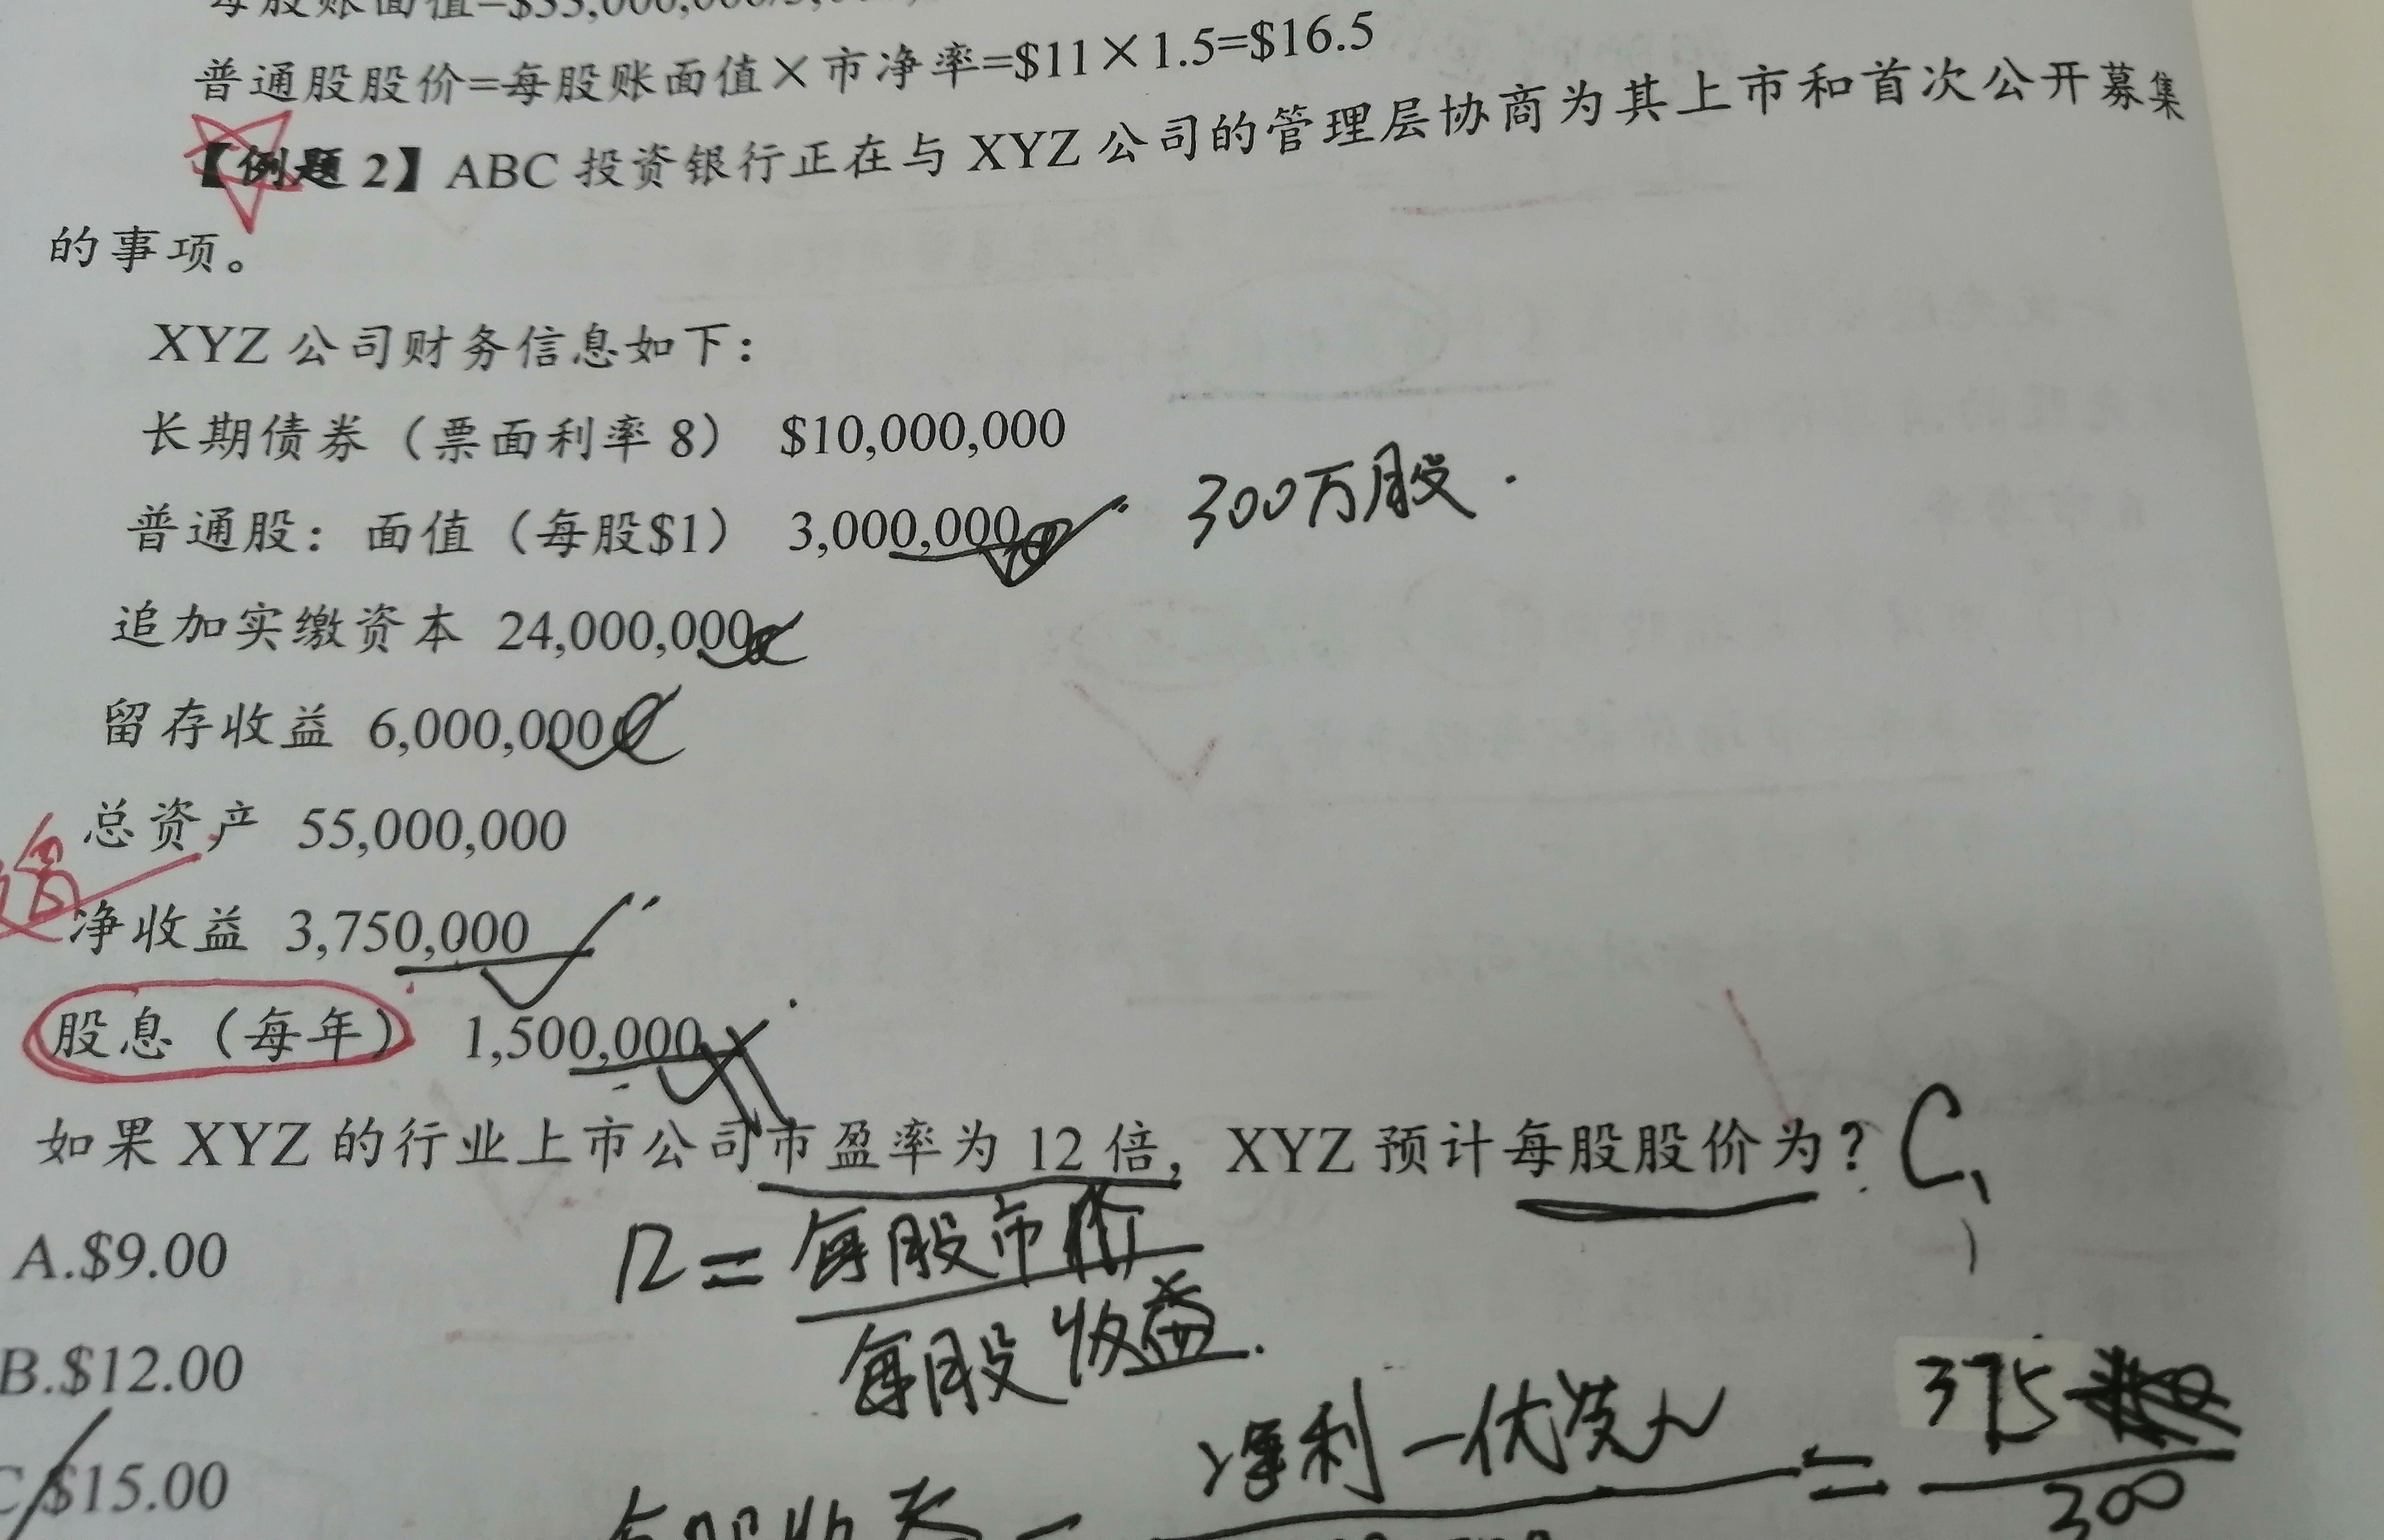 每股账面值=$33,000,000/3,
普通股股价=每股账面值×市净率=$11×1.5=$16.5
【例题 2】ABC 投资银行正在与 XYZ 公司的管理层协商为其上市和首次公开募集
的事项。
XYZ 公司财务信息如下：
长期债券（票面利率 8） $10,000,000
普通股：面值（每股$1） 3,000,000
300万股.
追加实缴资本 24,000,000
留存收益 6,000,000
总资产 55,000,000
净收益 3,750,000
股息（每年） 1,500,000
如果 XYZ 的行业上市公司市盈率为 12 倍，XYZ 预计每股股价为？ C
A.$9.00
12=每股市价
每股收益.
B.$12.00
净利-优 = 375
300
C.$15.00
每股收益=